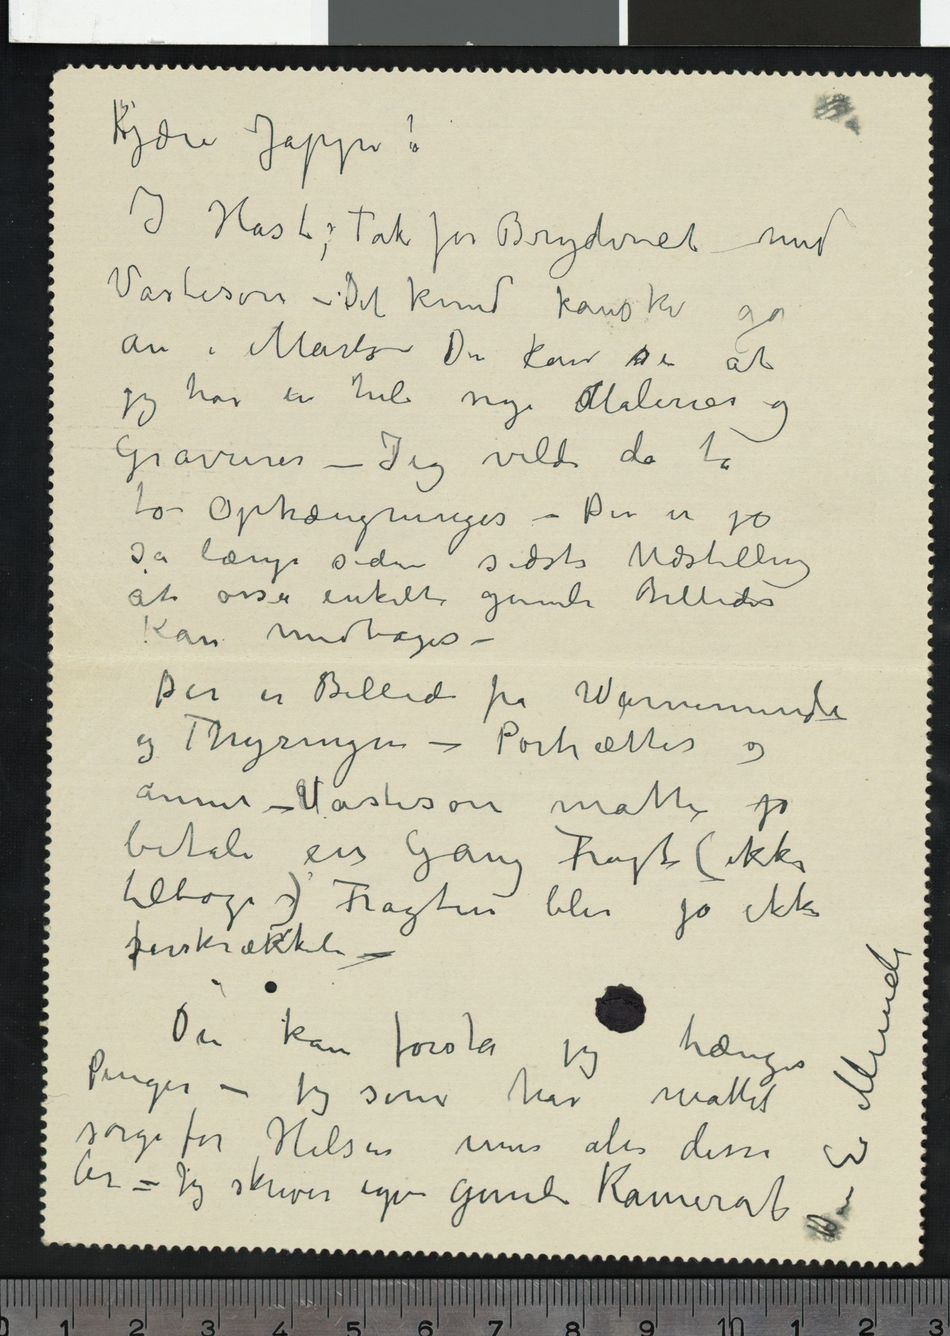 Kjære Jappe!
I Hast; Tak for Bryderiet med
Vasteson – Det kund kanske ga
an i Marts Du kan se at
jeg har en hel nye Malerier og
Gravurer – Jeg vilde da ta
to Ophængninger – Der er jo
så længe siden sidste Udstilling
at ossa enkelte gamle Billeder
kan medtages –
Der er Billede fra Warnemünde
og Thyringen – Portrætter og
annet – Vasteson måtte jo
betale en Gang Fragt (ikke
tilbage) Fragten blir jo ikke
forskrækkeli –
Du kan forstå jeg trænger
Penger – jeg som har måttet
sørge for Helsen min alle disse
År – Jeg skriver igjen Gamle Kamerat
Din E Munch
0 1 2 3 4 5 6 7 8 9 10 1 2 3